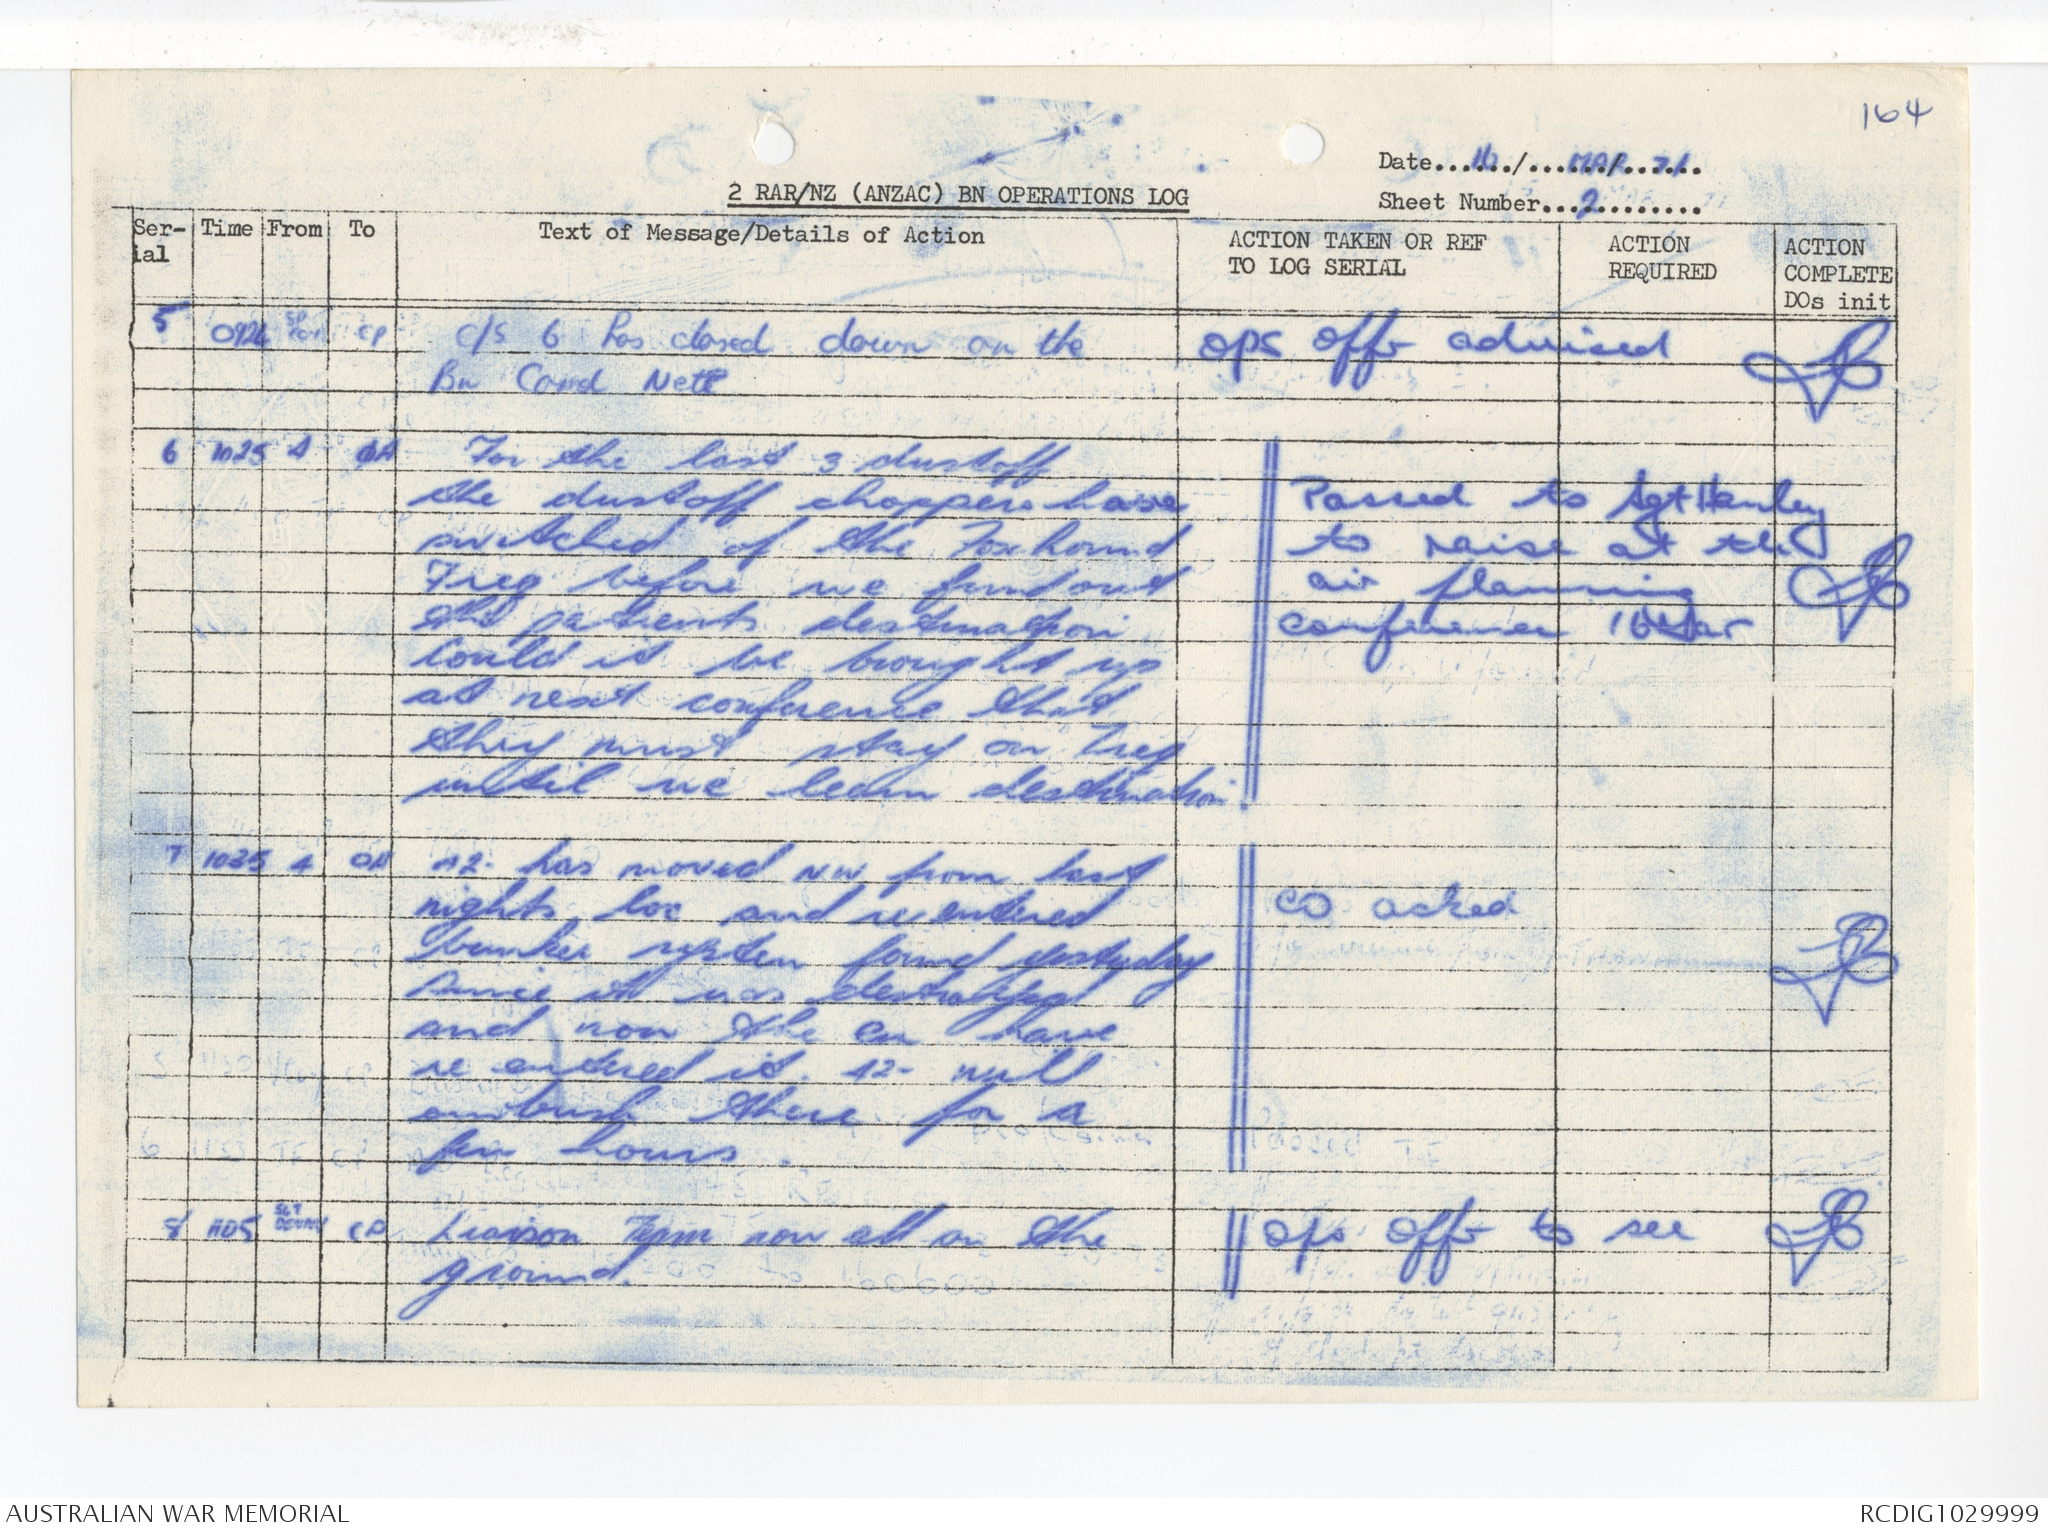 164
Date 16/MAR/71
Sheet Number 2
2 RAR/NZ (ANZAC) BN OPERATIONS LOG
Ser-ial Time From To Text of Message/Details of Action ACTION TAKEN OR REF TO LOG SERIAL ACTION REQUIRED ACTION COMPLETE DOs init
5 CP c/s 6 has closed down on the Ops Offr advised
Bn Comd Nett
6 1025 4 0A For the last 3 dustoff
the dustoff choppers have Passed to Sgt
switched of the Foxhound to raise at the
Freq before we find out air planning
the patients destination conference 16 Mar
Could it be brought up
at next conference that
they must stay on Freq
until we learn destination
7 1035 4 0A 42- has moved NW from last
nights loc and re entered CO acked
bunker system found yesterday
Since it was destroyed
and now the en have
re entered it. 42- will
ambush there for a
few hours.
8 1105 SGT CP Liaison Team now all on the Ops Offr to see
ground.
AUSTRALIAN WAR MEMORIAL
RCDIG1029999